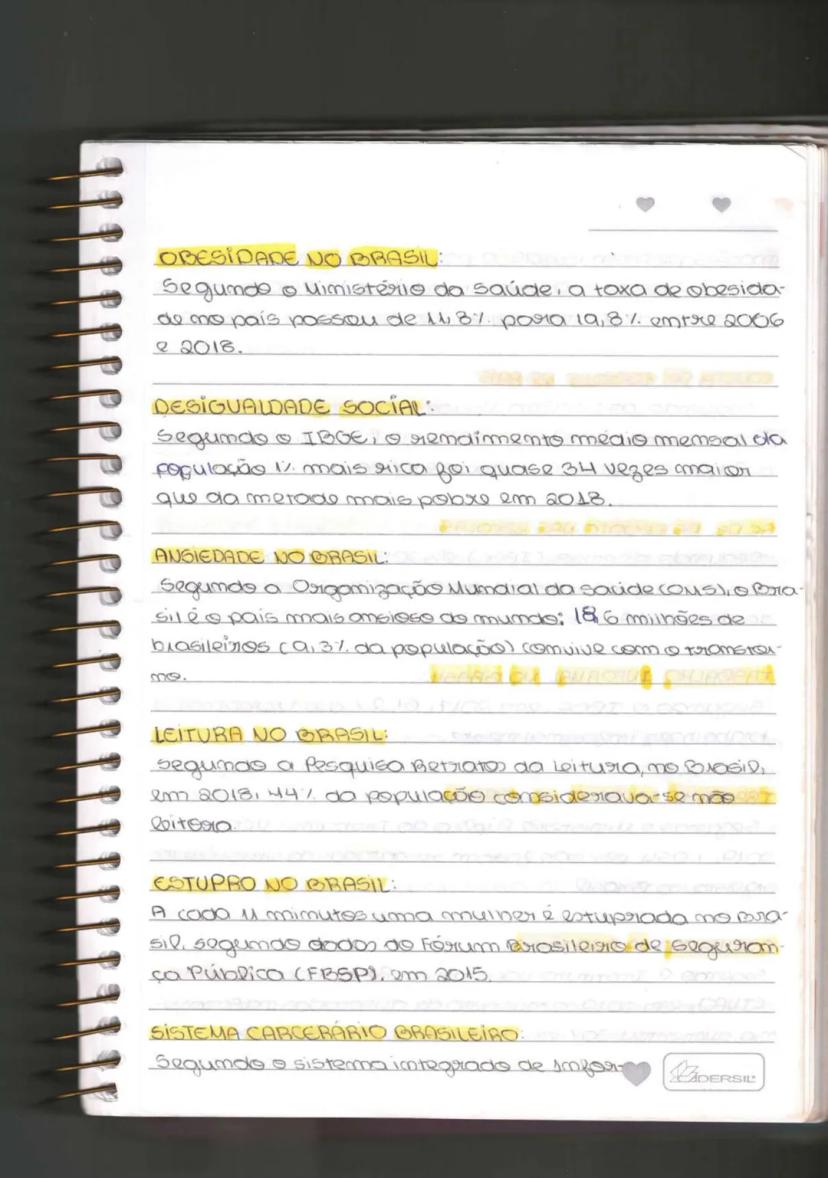 OBESIDADE NO BRASIL:
Segundo o Ministério da Saúde, a taxa de obesida-
de no país passou de 11,8% para 19,8% entre 2006
e 2018.
DESIGUALDADE SOCIAL:
Segundo o IBGE, o rendimento médio mensal da
população 1% mais rica foi quase 34 vezes maior
que da metade mais pobre em 2018.
ANSIEDADE NO BRASIL:
Segundo a Organização Mundial da Saúde (OMS), o Bra-
sil é o país mais ansioso do mundo: 18,6 milhões de
brasileiros (9,3% da população) convive com o transtor-
no.
LEITURA NO BRASIL:
Segundo a Pesquisa Retratos da Leitura, no Brasil,
em 2018, 44% da população considerava-se não
leitora.
ESTUPRO NO BRASIL:
A cada 11 minutos uma mulher é estuprada no Bra-
sil, segundo dados do Fórum Brasileiro de Seguran-
ça Pública (FBSP), em 2015.
SISTEMA CARCERÁRIO BRASILEIRO:
Segundo o sistema integrado de Infor-